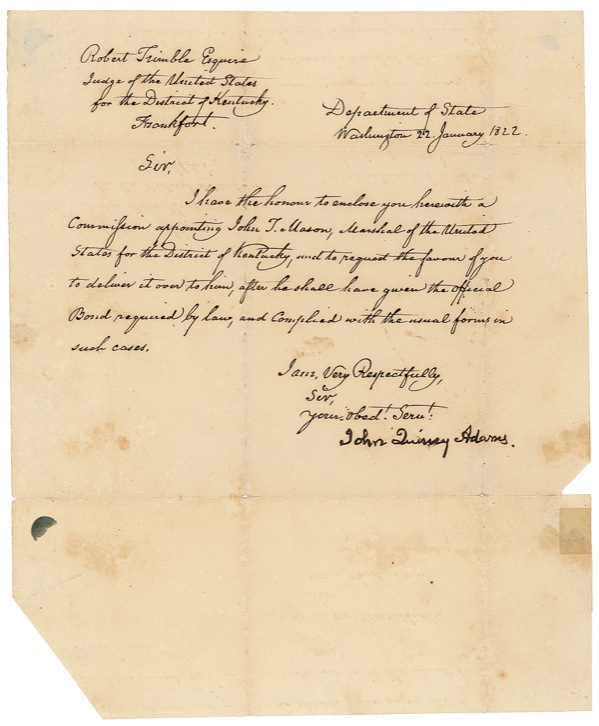 Robert Trimble Esquire
Judge of the United States
for the District of Kentucky.
Frankfort.
Department of State
Washington 22 January 1822.
Sir,
I have the honour to enclose you herewith a
Commission appointing John T. Mason, Marshal of the United
States for the District of Kentucky, and to request the favour of you
to deliver it over to him, after he shall have given the official
Bond required by law, and Complied with the usual forms in
such cases.
I am, Very Respectfully,
Sir,
your obed.t Serv.t
John Quincy Adams.